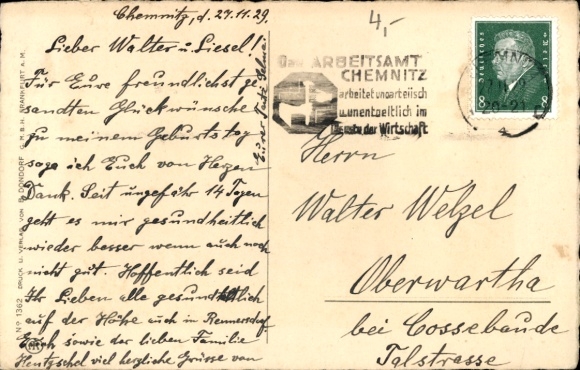 Chemnitz, d. 27.11.29.
Lieber Walter u. Liesel!
Für Eure freundlichst ge-
sandten Glückwünsche
zu meinem Geburtstag
sage ich Euch von Herzen
Dank. Seit ungefähr 14 Tagen
geht es mir gesundheitlich
wieder besser wenn auch noch
nicht gut. Hoffentlich seid
Ihr Lieben alle gesundheitlich
auf der Höhe auch in Rennersdorf.
Euch sowie der lieben Familie
Hentzschel viel herzliche Grüsse von
Eurer
No 1362 DRUCK U. VERLAG VON B. DONDORF G.M.B.H. FRANKFURT A. M.
4,-
Das ARBEITSAMT
CHEMNITZ
arbeitet unparteiisch
u. unentgeltlich im
Dienste der Wirtschaft
Deutsches Reich
8 8
20-21
Herrn
Walter Welzel
Oberwartha
bei Cossebaude
Talstrasse